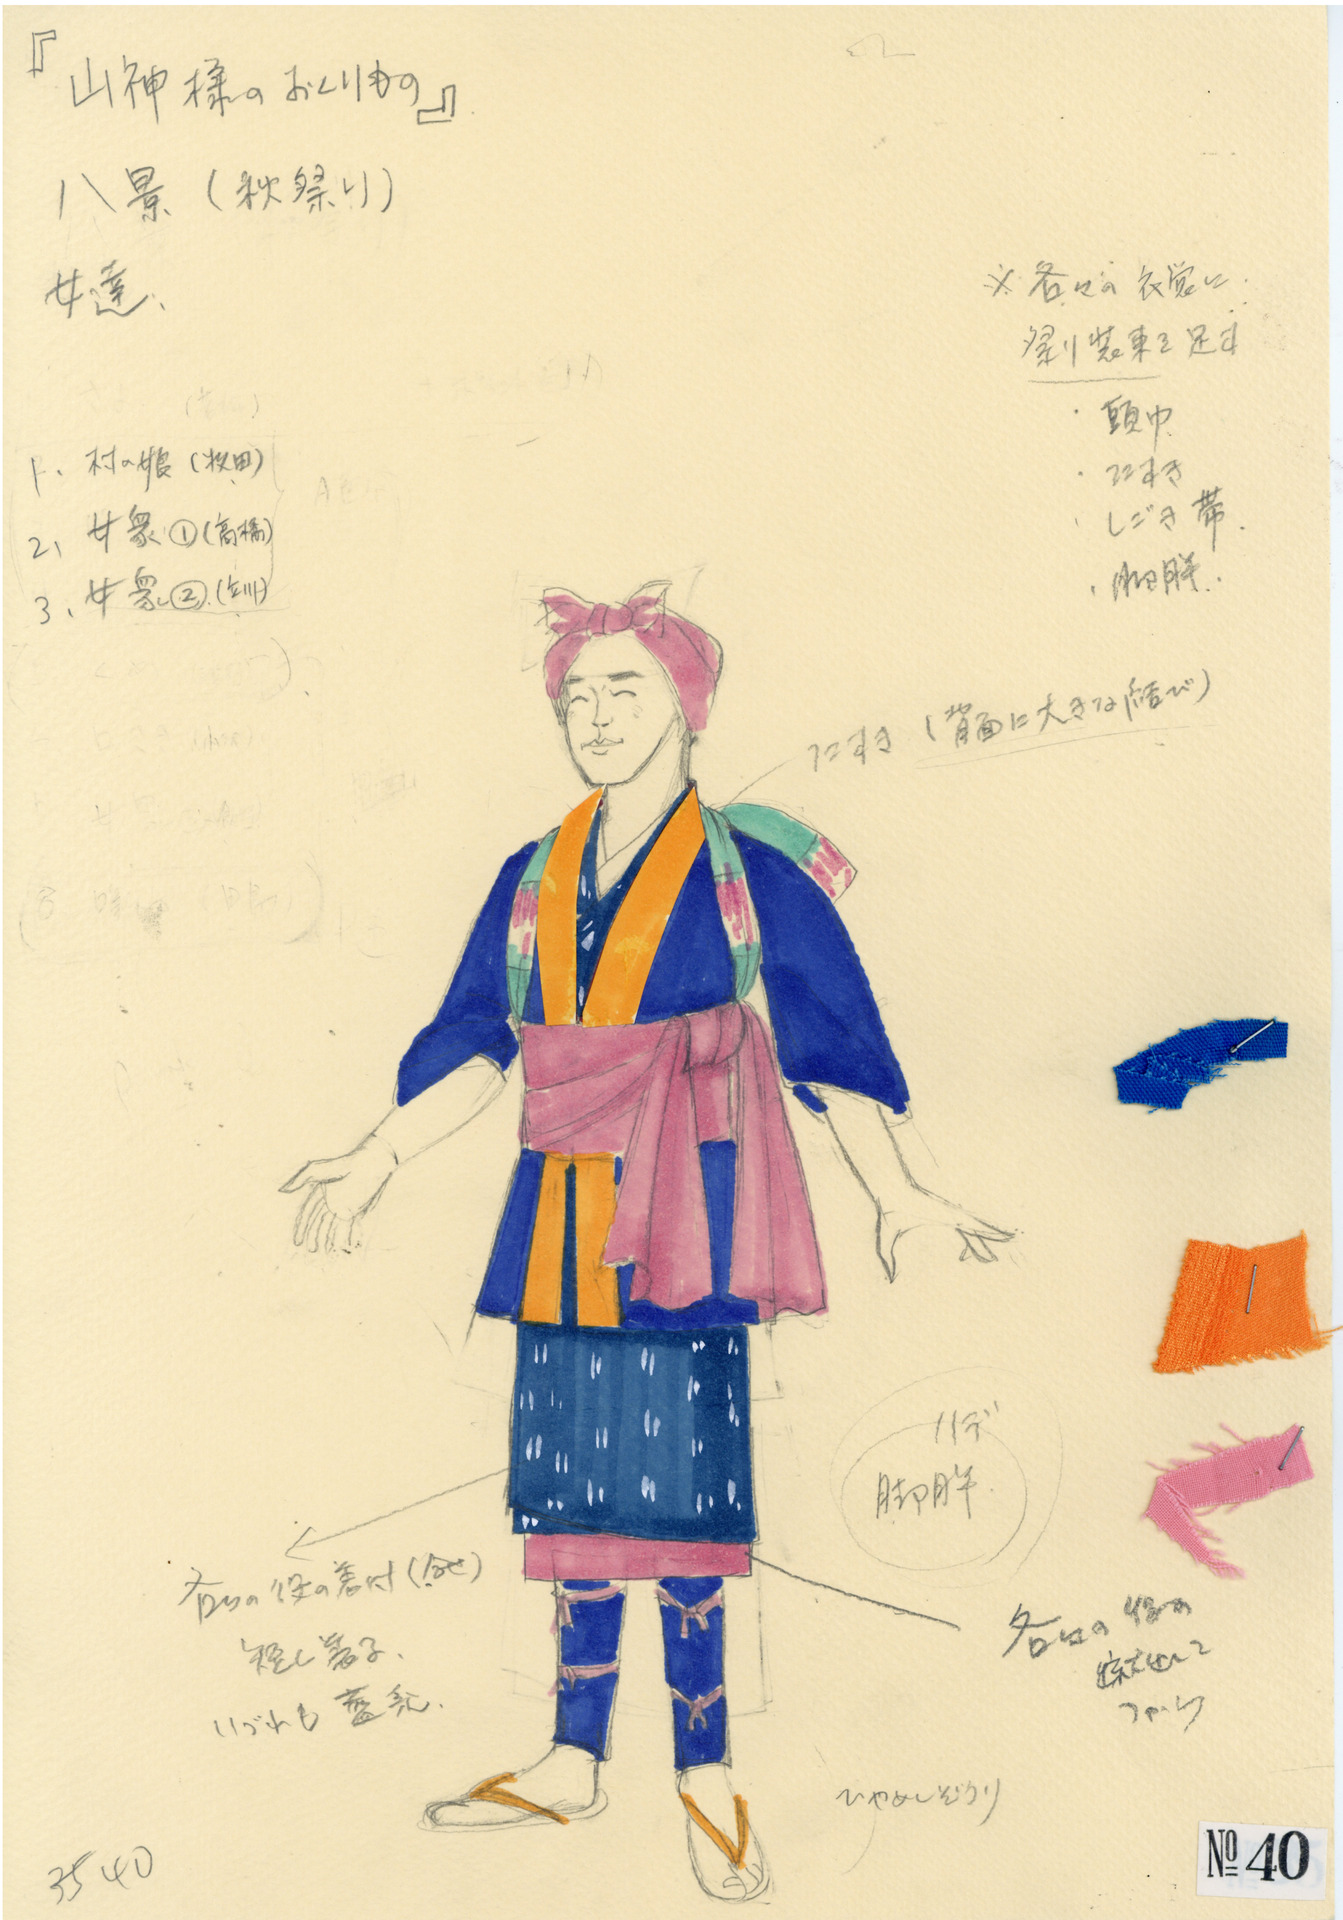 『山神様のおくりもの』
八景（秋祭り）
女達、
※各々の衣裳に
祭り装束を足す
・頭巾
・たすき
・しごき帯
・脚絆
1、村の娘（牧田）
2、女衆①（高橋）
3、女衆②
たすき（背面に大きな結び）
ハデ
脚絆
各々の役の着付（合せ）
短し着る
いづれも藍系
各々の役の
ひやめしぞうり
3540
№40